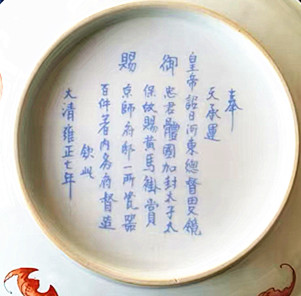 奉
天承運
皇帝詔曰河東總督田文鏡
忠君體國加封太子太
御
保欽賜黃馬褂賞
賜
京師府邸一所瓷器
百件著內務府督造
欽此
大清雍正七年